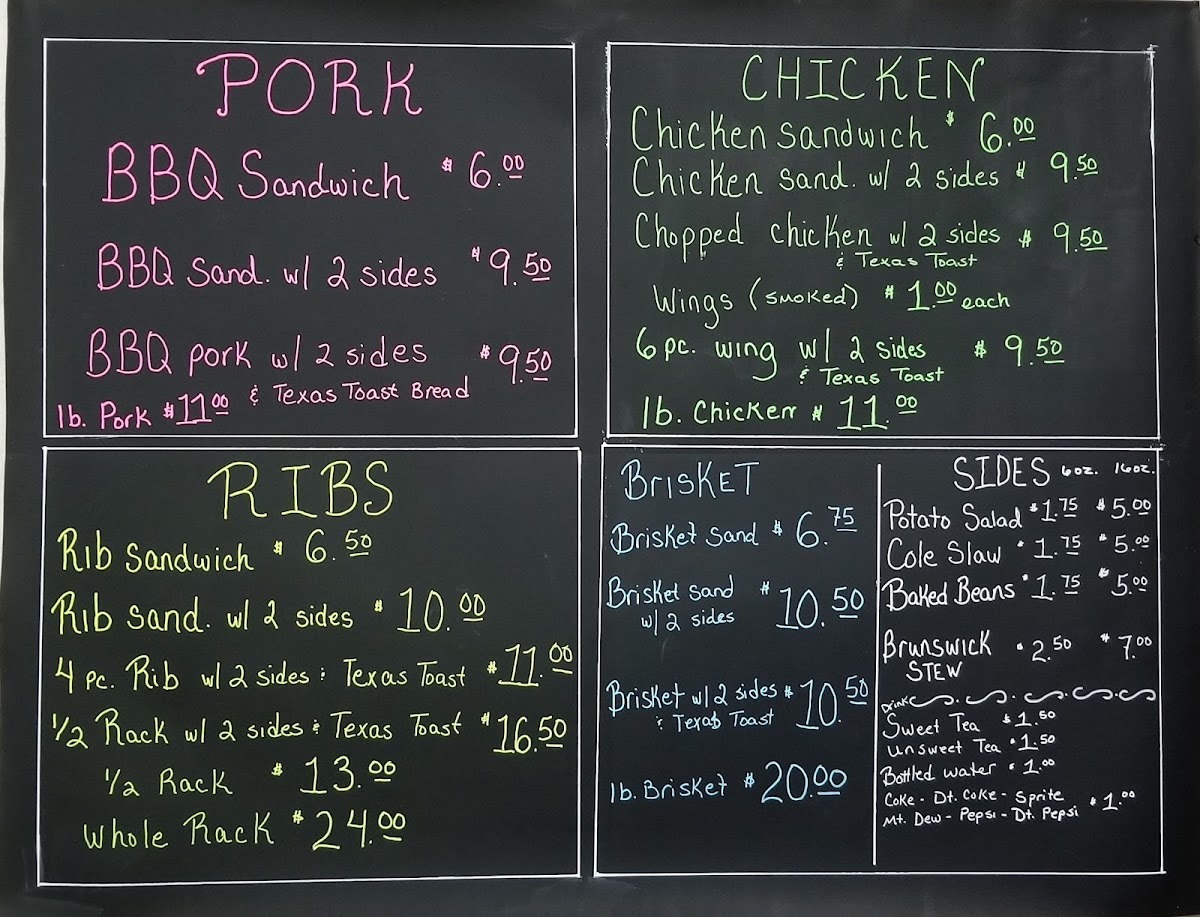 PORK
BBQ Sandwich $6.00
BBQ Sand. w/ 2 sides $9.50
BBQ pork w/ 2 sides $9.50
& Texas Toast Bread
lb. Pork $11.00
CHICKEN
Chicken Sandwich $6.00
Chicken Sand. w/ 2 sides $9.50
Chopped chicken w/ 2 sides $9.50
& Texas Toast
Wings (smoked) $1.00 each
6 pc. wing w/ 2 sides $9.50
& Texas Toast
lb. Chicken $11.00
RIBS
Rib Sandwich $6.50
Rib Sand. w/ 2 sides $10.00
4 pc. Rib w/ 2 sides & Texas Toast $11.00
1/2 Rack w/ 2 sides & Texas Toast $16.50
1/2 Rack $13.00
Whole Rack $24.00
Brisket
Brisket Sand $6.75
Brisket Sand $10.50
w/ 2 sides
Brisket w/ 2 sides $10.50
& Texas Toast
lb. Brisket $20.00
SIDES 6oz. 16oz.
Potato Salad $1.75 $5.00
Cole Slaw $1.75 $5.00
Baked Beans $1.75 $5.00
Brunswick $2.50 $7.00
Stew
Drink
Sweet Tea $1.50
Unsweet Tea $1.50
Bottled Water $1.00
Coke - Dt. Coke - Sprite
Mt. Dew - Pepsi - Dt. Pepsi $1.00